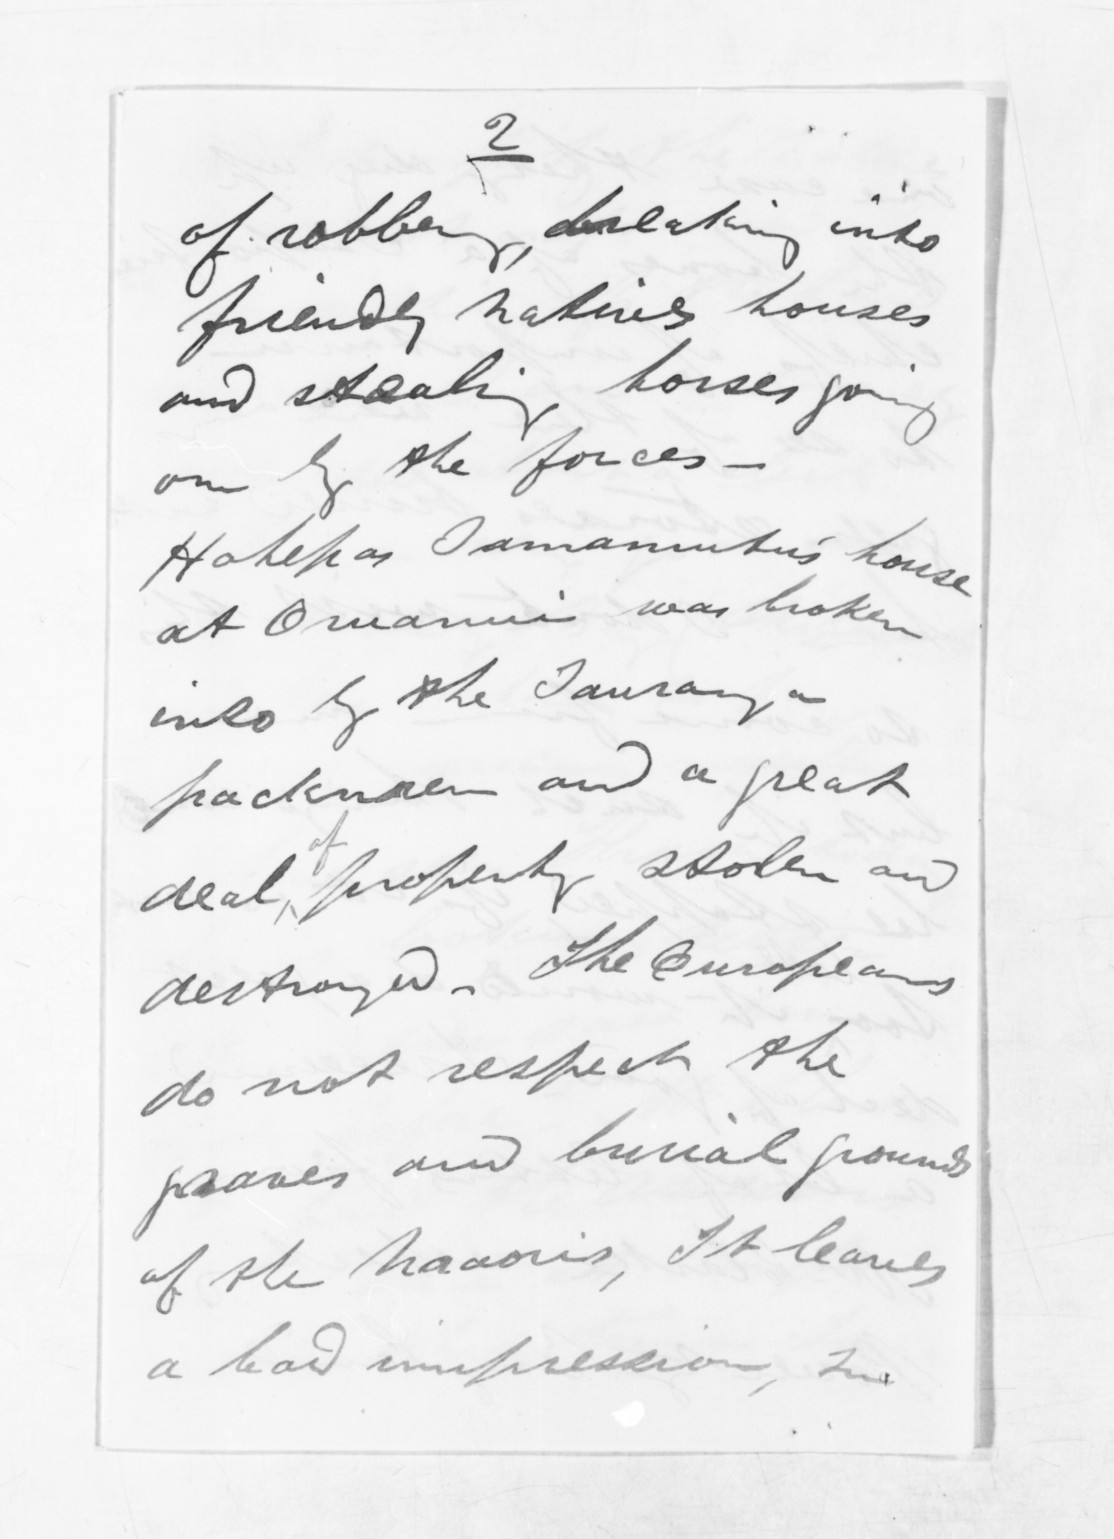 2
of robbery, breaking into
friendly natives houses
and stealing horses going
on by the forces -
Hohepas Tamamutu's house
at Oruanui was broken
into by the Tauranga
packmen and a great
deal, of property stolen and
destroyed. The Europeans
do not respect the
graves and burial grounds
of the Maoris, It leaves
a bad impression, In